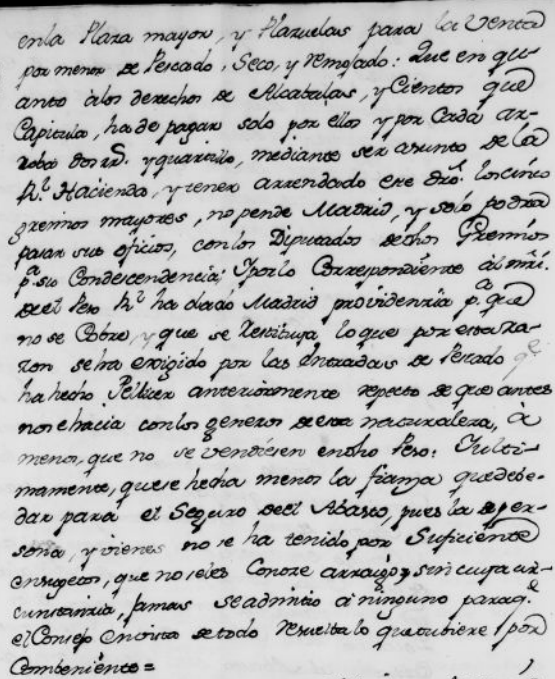 enla Plaza mayor, y Plazuelas para la Venta
por menor de Pescado, Seco, y remojado: Que en qu-
anto alos derechos de Alcabalas, y Cientos que
Capitula, ha de pagar solo por ellos y por Cada ar-
roba dos rs. y quartillo, mediante ser asunto de la
Rl. Hacienda, y tener arrendado ese dro. los cinco
gremios mayores, no pende Madrid, y solo podra
pasar sus oficios, con los Diputados dedhos Gremios
pa. su Condescendencia; Y por lo Correspondiente al mri.
de el Peso Rl. ha dado Madrid providencia pa. que
no se Cobre, y que se Restituya lo que por esta ra-
zon se ha exigido por las Entradas de Pescado qe.
ha hecho Pellicer anteriormente respecto de que antes
nosehacia con los generos de esta naturaleza, a
menos, que no se vendiesen endho Peso: Yulti-
mamente, que se hecha menos la fianza que debe-
dar para el Seguro de el Abasto, pues la de per-
sona, y vienes no se ha tenido por Suficiente
ensugetos, que no seles Conoze arraigo, sin cuya cir-
cunstanzia, Jamas se admitio a ninguno para qe.
el Consejo en vista de todo resuelba lo que tubiere por
Combeniente =